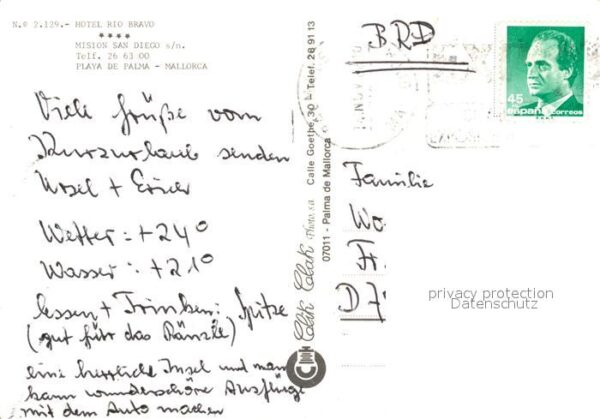 N.º 2.129.- HOTEL RIO BRAVO
****
MISION SAN DIEGO s/n.
Telf. 26 63 00
PLAYA DE PALMA - MALLORCA
Viele Grüße vom
Kurzurlaub senden
Wetter: +24°
Wasser: +21°
Essen + Trinken: Spitze
(gut für das Ränzle)
eine herrliche Insel und man
kann wunderschöne Ausflüge
mit dem Auto machen
Clik Clak Photo, s.a.
Calle Goethe, 30 - Telef. 26 91 13
07011 - Palma de Mallorca
BRD
45
españa correos
Familie
Wa
D 7
privacy protection
Datenschutz